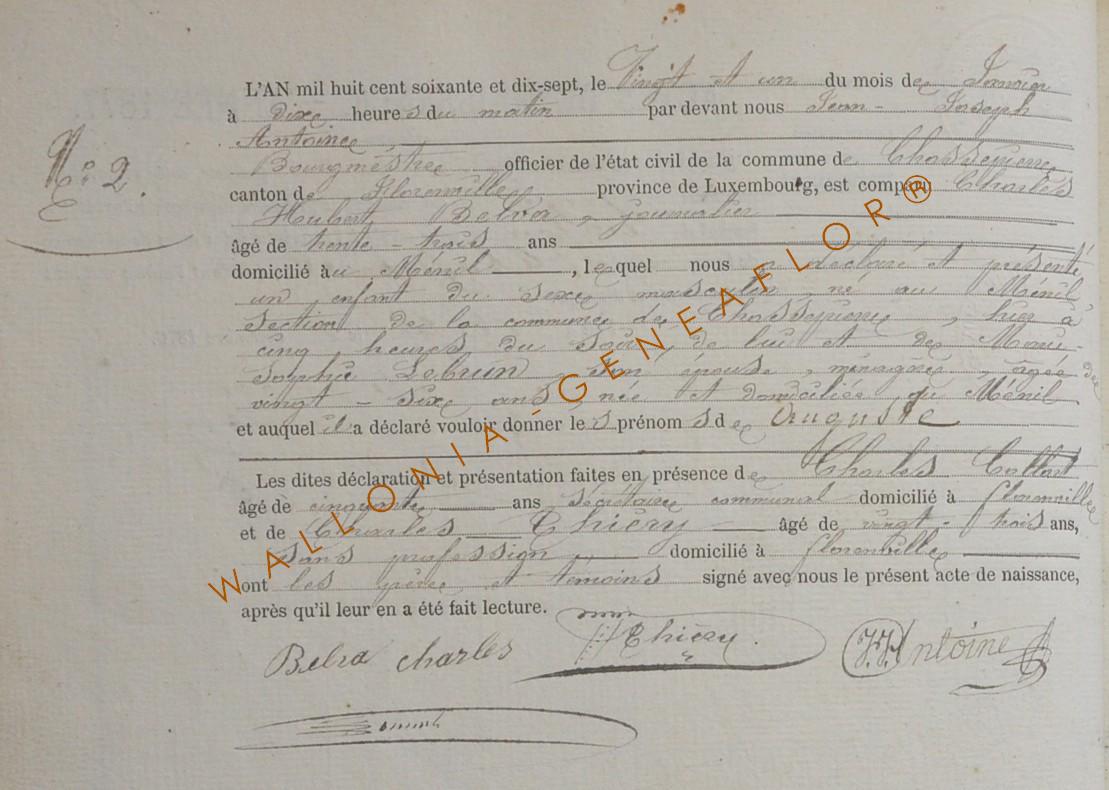 L'AN mil huit cent soixante et dix-sept, le Vingt et un du mois de Janvier
à dix heures du matin par devant nous Jean - Joseph
Antoine
Bourgmestre officier de l'état civil de la commune de Chassepierre
canton de Florenville province de Luxembourg, est comparu Charles
Hubert Belva, journalier
âgé de trente - trois ans
domicilié au Ménil, lequel nous a déclaré et présenté
un enfant du sexe masculin né au Ménil
section de la commune de Chassepierre, hier à
cinq heures du soir, de lui et de Marie-
Sophie Lebrun, son épouse, ménagère, âgée de
vingt - six ans, née et domiciliée au Ménil
et auquel il a déclaré vouloir donner les prénoms de Auguste
Les dites déclaration et présentation faites en présence de Charles
âgé de cinquante ans secrétaire communal domicilié à Florenville
et de Charles Thiéry âgé de vingt - trois ans,
sans profession domicilié à Florenville
ont les père et témoins signé avec nous le présent acte de naissance,
après qu'il leur en a été fait lecture.
N° 2.
Belva charles Thiéry. J.J. Antoine
WALLONIA-GENEAFLOR®